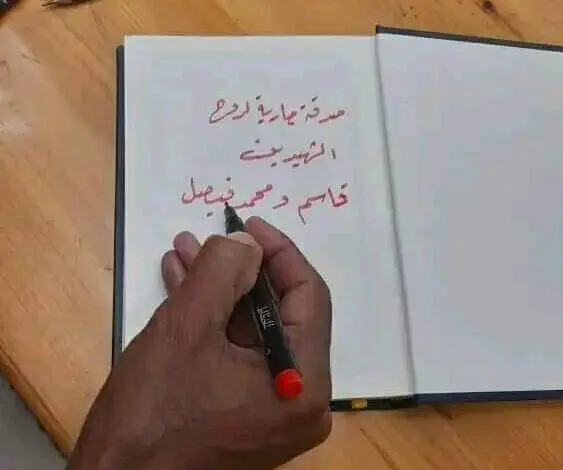 صدقة جارية لروح
الشهيدين
قاسم و محمد فيصل